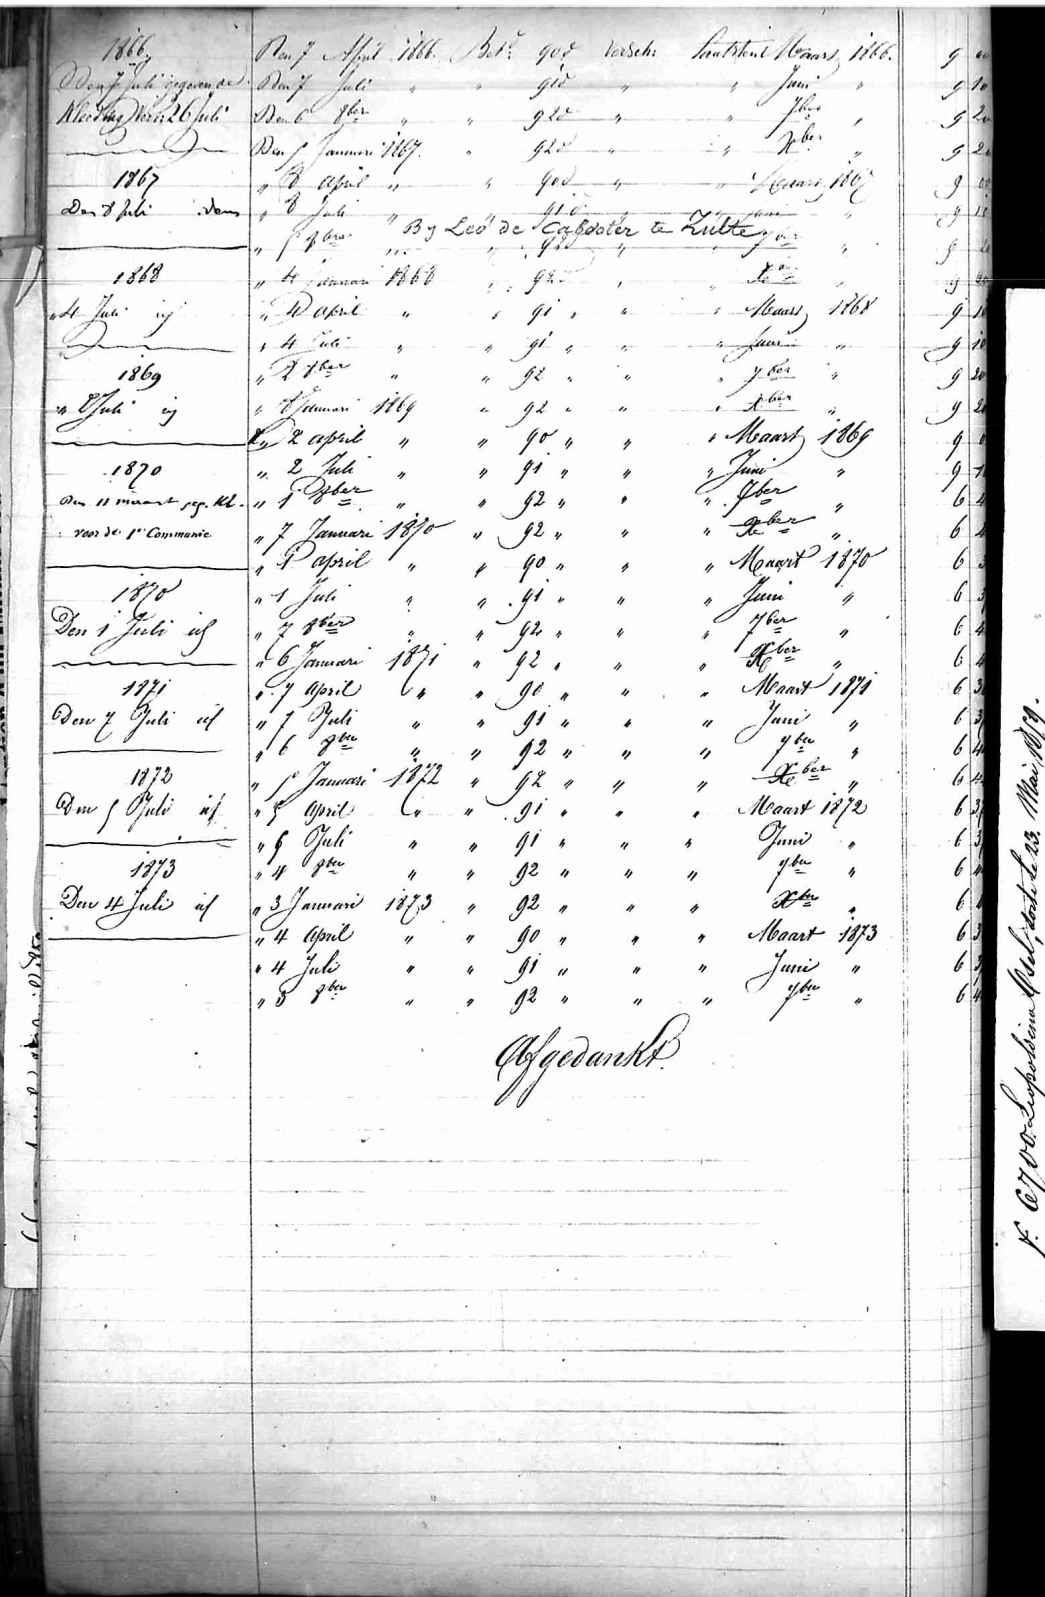 1866 Den 7 April 1866. Bet. 90 d versch. Laatstent Maart 1866. 9 00
Den 7 Juli gegeven de Den 7 Juli " " 91 d " " Juni " 9 10
Kleeding 26 Juli Den 6 8ber " " 92 d " " 7ber " 9 20
Den 5 Januari 1867. " 92 d " " Xber " 9 20
1867 " 8 April " " 90 d " " Maart 1867 9 00
Den 8 Juli idem " 8 Juli " 91 d " " Juni " 9 10
By Leo de te Zulte
" 5 8ber " " 92 d " " 7ber " 9 20
1868 " 4 Januari 1868 " 92 d " " Xber " 9 20
" 4 Juli id " 4 april " " 91 " " " Maart 1868 9 10
" 4 Juli " " 91 " " " Juni " 9 10
1869 " 2 8ber " " 92 " " " 7ber " 9 20
" 2 Juli id " 8 Januari 1869 " 92 " " " Xber " 9 20
" 2 april " " 90 " " " Maart 1869 9 0
1870 " 2 Juli " " 91 " " " Juni " 9 1
den 11 maart geg. Kl. " 1 8ber " " 92 " " " 7ber " 6 4
voor de 1e Communie " 7 Januari 1870 " 92 " " " Xber " 6 4
" 1 april " " 90 " " " Maart 1870 6 3
1870 " 1 Juli " " 91 " " " Juni " 6 3
Den 1 Juli id " 7 8ber " " 92 " " " 7ber " 6 4
" 6 Januari 1871 " 92 " " " Xber " 6 4
1871 " 7 april " " 90 " " " Maart 1871 6 3
Den 7 Juli id " 7 Juli " " 91 " " " Juni " 6 3
" 6 8ber " " 92 " " " 7ber " 6 4
1872 " 5 Januari 1872 " 92 " " " Xber " 6 4
Den 5 Juli id " 5 april " " 91 " " " Maart 1872 6 3
" 5 Juli " " 91 " " " Juni " 6 3
1873 " 4 8ber " " 92 " " " 7ber " 6 4
Den 4 Juli id " 3 Januari 1873 " 92 " " " Xber " 6 4
" 4 april " " 90 " " " Maart 1873 6 3
" 4 Juli " " 91 " " " Juni " 6 3
" 3 8ber " " 92 " " " 7ber " 6 4
Afgedankt.
F. 6700. Leopoldina Osel, sorti le 23 Mai 1859.